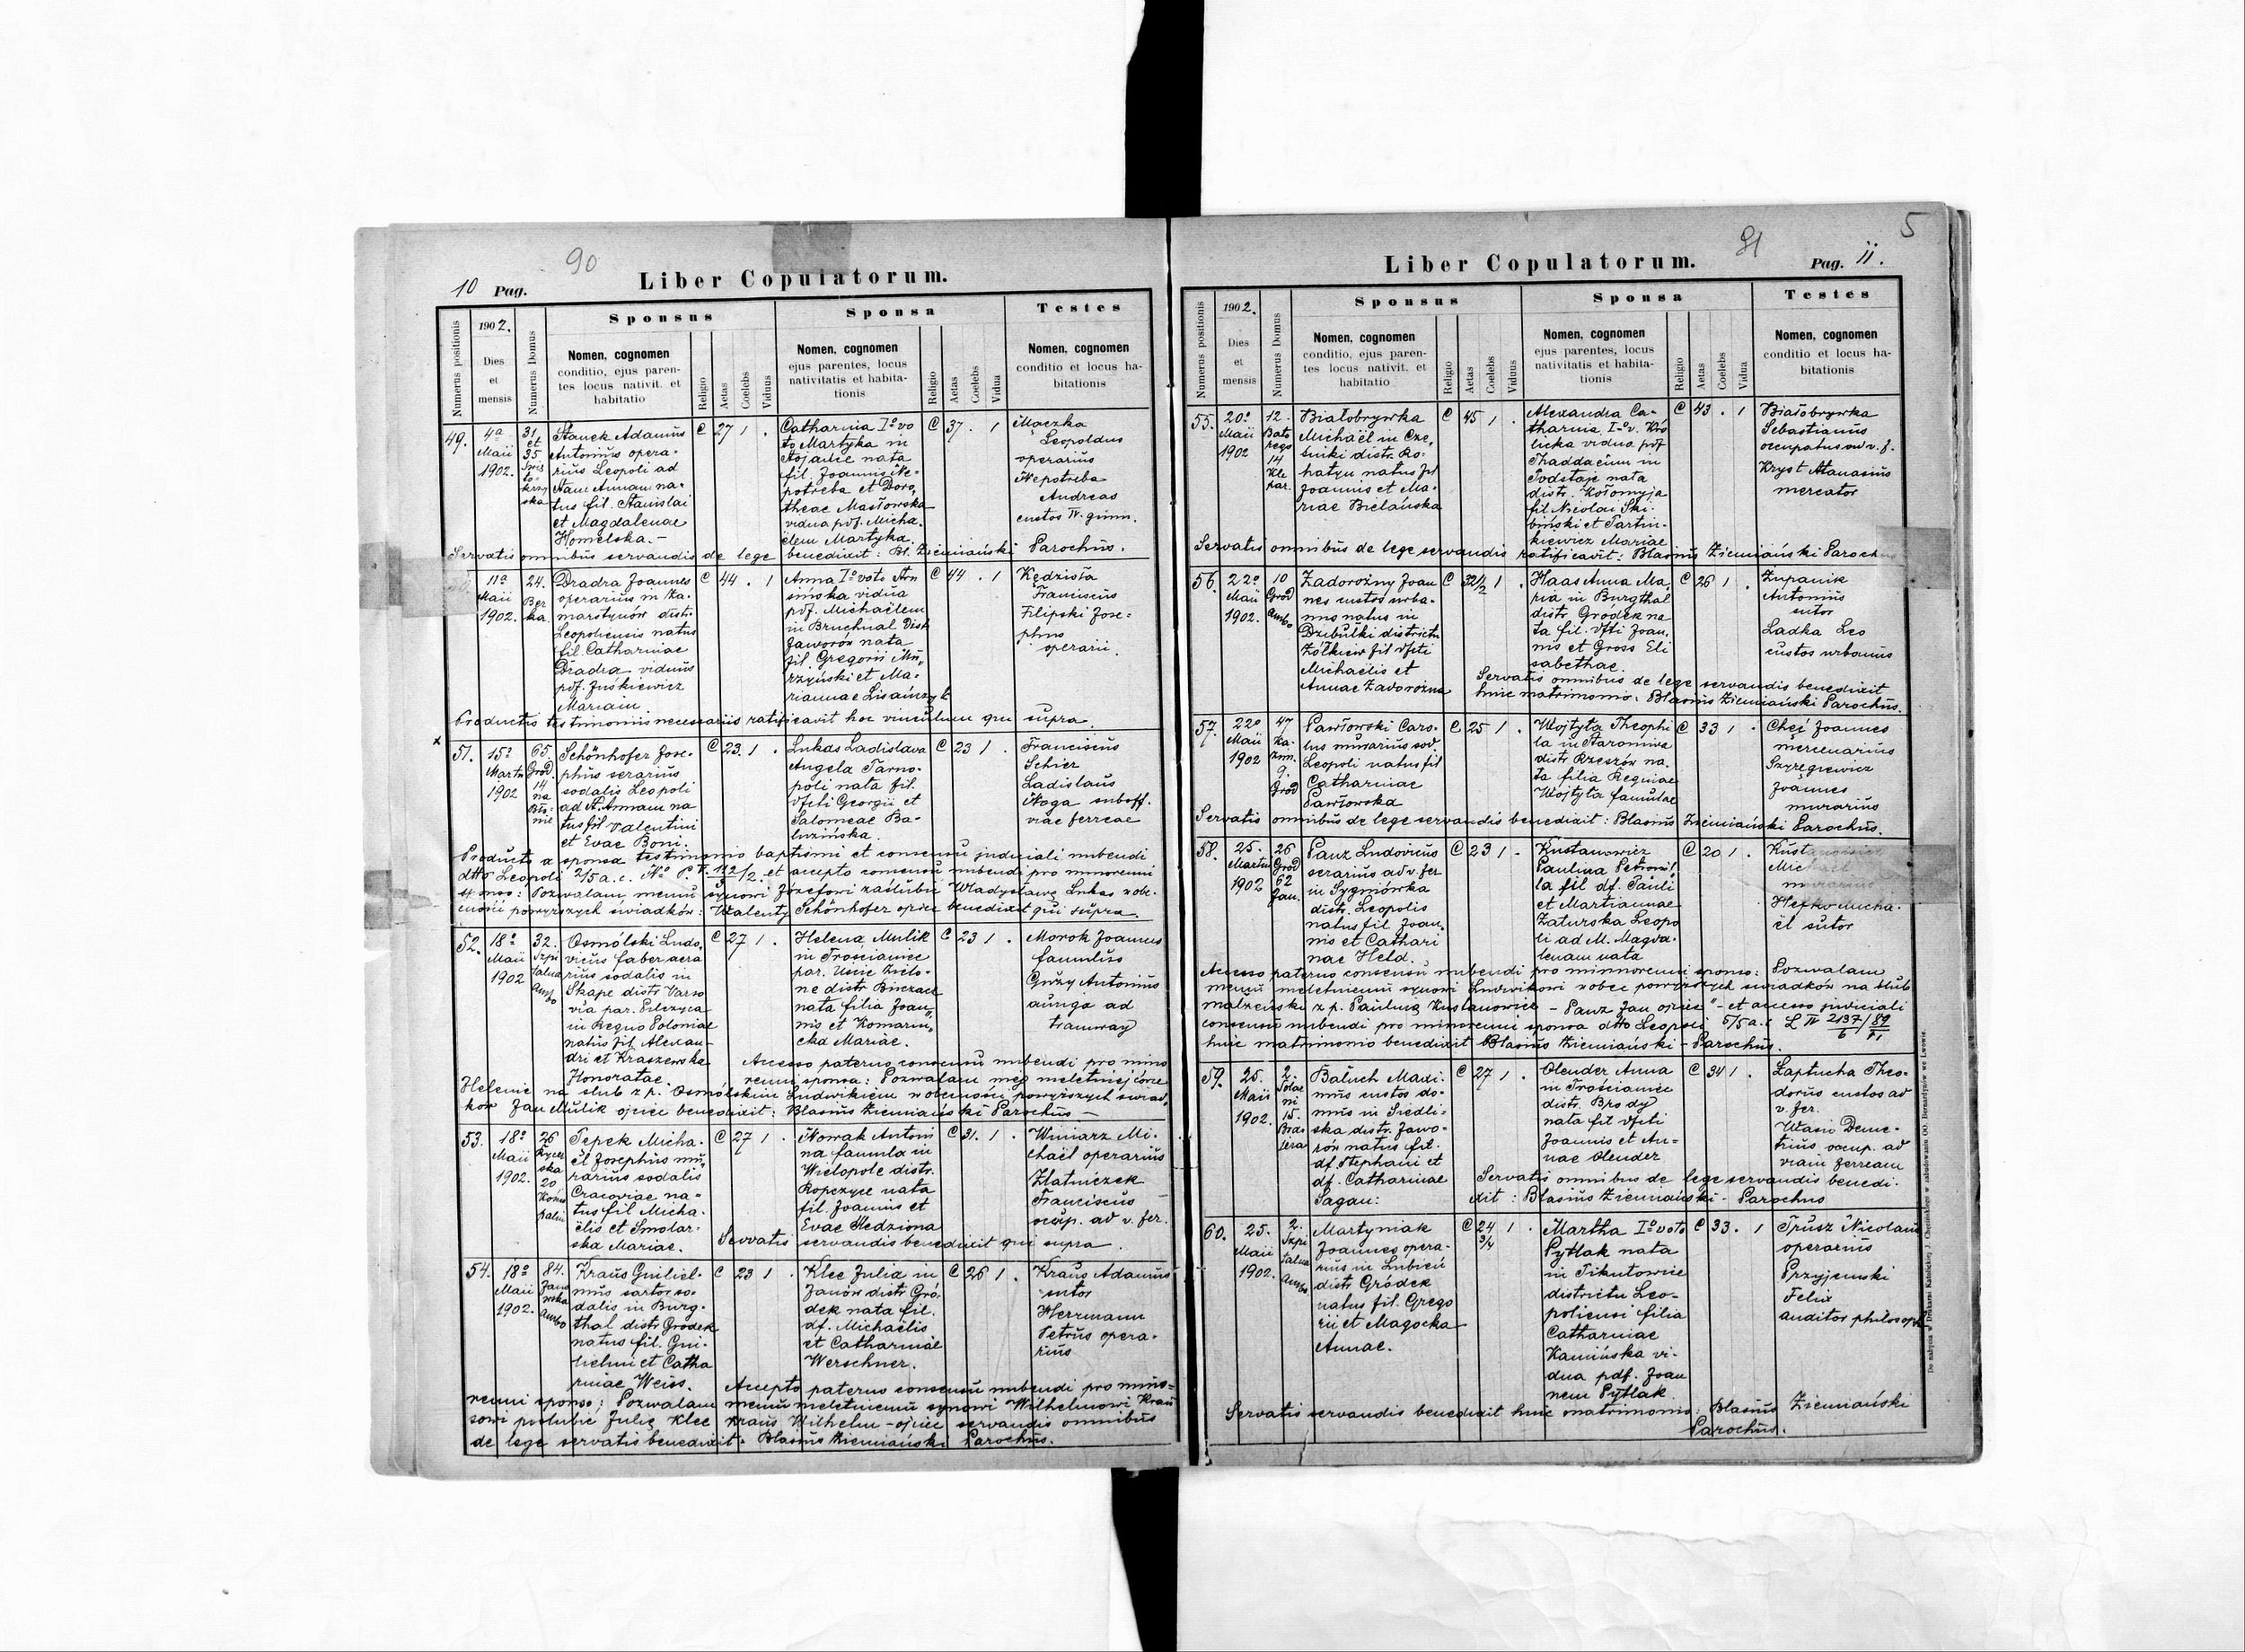 90
10 Pag.
Liber Copulatorum.
Numerus positionis
1902.
Dies
et
mensis
Numerus Domus
Sponsus
Nomen, cognomen
conditio, ejus paren-
tes locus nativit. et
habitatio
Religio
Aetas
Coelebs
Viduus
Sponsa
Nomen, cognomen
ejus parentes, locus
nativitatis et habita-
tionis
Religio
Aetas
Coelebs
Vidua
Testes
Nomen, cognomen
conditio et locus ha-
bitationis
49.
4a
Maii
1902.
31
et
35
Stanek Adamus
Antonius opera-
rius Leopoli ad
Stam Annam na-
tus fil. Stanislai
et Magdalenae
Homelska.-
C 27 1 .
Catharina Io vo
to Martyka in
nata
fil. Joannis Ne-
potreba et Doro,
theae Masłowska
vidua pdf. Micha.
elem Martyka.
C 37 . 1
Maczka
Leopoldus
operarius
Nepotreba
Andreas
custos IV. gimn.
Servatis omnibus servandis de lege benedixit: Bl. Ziemiański Parochus.
11a
Maii
1902.
24.
Ber
ka.
Dradra Joannes
operarius in Za-
marstynów distr.
Leopoliensis natus
fil. Catharinae
Dradra viduus
pdf. Juśkiewicz
Mariam
C 44 . 1
Anna Io voto
vidua
pdf. Michaëlem
in Bruchnal Distr
Jaworów nata
fil. Gregorii Mu,
rzyński et Ma-
riannae
C 44 . 1
Kędzista
Franciscus
Filipski Jose-
phus
operarii.
Productis testimoniis necessariis ratificavit hoc vinculum qui supra.
x
51.
15o
Martii
1902
65.
Gród.
14
na
Schönhofer Jose-
phus serarius
sodalis Leopoli
ad St. Annam na
tus fil Valentini
et Evae Boni.
C 23 1 .
Lukas Ladislava
Angela Tarno-
poli nata fil.
Georgii et
Salomeae Ba-
luzińska.
C 23 1 .
Franciscus
Schier
Ladislaus
Noga suboff.
viae ferreae
Producto a sponsa testimonio baptismi et consensu judiciali nubendi
dtto Leopoli 2/5 a.c. No P. V. 112/3 /2. et accepto consensu nubendi pro minorenni
sponso: Pozwalam memu synowi Józefowi zaślubić Władysławę Lukas w obe-
cności powyższych świadków: Walenty Schönhofer ojciec benedixit qui supra.
52.
18o
Maii
1902
32.
Szpi
talna
Ambo
Osmólski Ludo,
vicus faber aera
rius sodalis in
Skape distr. Varso
via par. Pilczyca
in Regno Poloniae
natus fil. Alexan-
dri et Kraszewska
Honoratae.
C 27 1 .
Helena Mulik
in Trosciance
par. Uscie Zielo-
ne distr. Buczacz
nata filia Joan,
nis et Komarn,
cka Mariae.
C 23 1 .
Morok Joannes
famulus
Guzy Antonius
auriga ad
tramway
Accesso paterno consensu nubendi pro mino
renni sponsa: Pozwalam mej nieletniej córce
Helenie na ślub z p. Osmólskim Ludwikiem w obecności powyższych świad,
ków Jan Mulik ojciec benedixit: Blasius Ziemiański Parochus -
53.
18o
Maii
1902.
26
Rycer
ska
20
Tepek Micha-
ël Josephus mu,
rarius sodalis
Cracoviae na-
tus fil Micha-
ëlis et Smolar-
ska Mariae.
C 27 1 .
Nowak Antoni
na famula in
Wielopole distr.
Ropczyce nata
fil. Joannis et
Evae Kedziona
C 31. 1 .
Winiarz Mi-
chaël operarius
Zlatniczek
Franciscus
occup. ad v. fer.
Servatis servandis benedixit qui supra.
54.
18o
Maii
1902.
84.
Jano
wska
Ambo
Kraus Guiliel-
mus sartor so-
dalis in Burg-
thal distr. Gródek
natus fil. Gui-
lielmi et Catha
rinae Weiss.
C 23 1 .
Klee Julia in
Janów distr. Gró-
dek nata fil.
df. Michaëlis
et Catharinae
Werschner.
C 26 1 .
Kraus Adamus
sutor
Herrmann
Petrus opera-
rius
Accepto paterno consensu nubendi pro mino-
renni sponso: Pozwalam memu nieletniemu synowi Wilhelmowi Krau
sowi poślubić Julię Klee Kraus Wilhelm - ojciec servandis omnibus
de lege servatis benedixit. Blasius Ziemiański Parochus.
5
91
Liber Copulatorum.
Pag. 11.
Numerus positionis
1902.
Dies
et
mensis
Numerus Domus
Sponsus
Nomen, cognomen
conditio, ejus paren-
tes locus nativit. et
habitatio
Religio
Aetas
Coelebs
Viduus
Sponsa
Nomen, cognomen
ejus parentes, locus
nativitatis et habita-
tionis
Religio
Aetas
Coelebs
Vidua
Testes
Nomen, cognomen
conditio et locus ha-
bitationis
55.
20o
Maii
1902
12.
Bato
rego
14
Kle
par.
Białobrywka
Michaël in Cze,
śniki distr. Ro-
hatyn natus fil
Joannis et Ma-
riae Bielańska
C 45 1 .
Alexandra Ca-
tharina I-o v. Kró
licka vidua pdf
Thaddaeum in
Podstaje nata
distr. Kołomyja
fil Nicolai Ski-
biński et Tartin-
kiewicz Mariae
C 43 . 1
Białobrywka
Sebastianus
occupatus ad v. f.
Kryst Atanasius
mercator
Servatis omnibus de lege servandis ratificavit: Blasius Ziemiański Paroch
56.
22o
Maii
1902.
10
Gród
Ambo
Zadorożny Joan
nes custos urba-
nus natus in
Dzibułki districtu
Żółkiew fil
Michaëlis et
Annae Zadorożna
C 32 1/2 1 .
Haas Anna Ma
ria in Burgthal
distr. Gródek na
ta fil. Joan,
nis et Gross Eli
sabethae.
C 26 1 .
Zupanik
Antonius
sutor
Ladka Leo
custos urbanus
Servatis omnibus de lege servandis benedixit
huic matrimonio. Blasius Ziemiański Parochus.
57.
22o
Maii
1902
47
Ka-
zim.
9.
Gród
Pawłowski Caro-
lus murarius sod.
Leopoli natus fil
Catharinae
Pawłowska
C 25 1 .
Wojtyła Theophi
la in Staromieś
distr. Rzeszów na.
ta filia Reginae
Wojtyła famulae
C 33 1 .
Cheć Joannes
mercenarius
Joannes
murarius
Servatis omnibus de lege servandis benedixit: Blasius Ziemiański Parochus.
58.
25.
Martii
1902
26
Gród
62
Jan.
Panz Ludovicus
serarius ad v. fer
in Sygniówka
distr. Leopolis
natus fil. Joan,
nis et Cathari
nae Held.
C 23 1 .
Kustanowicz
Paulina Petronil
la fil df. Pauli
et Martiannae
Zaturska Leopo
li ad M. Magda-
lenam nata
C 20 1 .
Kustanowicz
Michaël
murarius
Hefko Micha-
ël sutor
Accesso paterno consensu nubendi pro minnorenni sponso: Pozwalam
memu nieletniemu synowi Ludwikowi wobec powyższych świadków na ślub
małżeński z p. Pauliną Kustanowicz - Panz Jan ojciec" - et accesso judiciali
consensu nubendi pro minorenni sponsa dtto Leopoli 5/5 a.c L IV 2137/6 / 89/VI
huic matrimonio benedixit Blasius Ziemiański - Parochus.
59.
25.
Maii
1902.
2.
15.
Baluch Maxi-
mus custos do-
mus in Siedli-
ska distr. Jawo-
rów natus fil.
df. Stephani et
df. Catharinae
Sagan:
C 27 1 .
Olender Anna
in Trościaniec
distr. Brody
nata fil
Joannis et An-
nae Olender
C 34 1 .
Łaptucha Theo-
dorus custos ad
v. fer.
Wasio Deme-
trius occup. ad
viam ferream
Servatis omnibus de lege servandis benedi-
xit: Blasius Ziemiański - Parochus
60.
25.
Maii
1902.
2.
Szpi
talna
Ambo
Martyniak
Joannes opera-
rius in Lubień
distr. Gródek
natus fil. Grego
rii et Magocka
Annae.
C 24 3/4 1 .
Martha Io voto
Pytlak nata
in Fikutowie
districtu Leo-
poliensi filia
Catharinae
Kamińska vi-
dua pdf. Joan
nem Pytlak.
C 33. . 1
Trusz Nicolaus
operarius
Przyjemski
Felix
auditor philosoph
Servatis servandis benedixit huic matrimonio: Blasius Ziemiański
Parochus.
Do nabycia w Drukarni Katolickiej J. Chęcińskiego w zabudowaniu OO. Bernardynów we Lwowie.